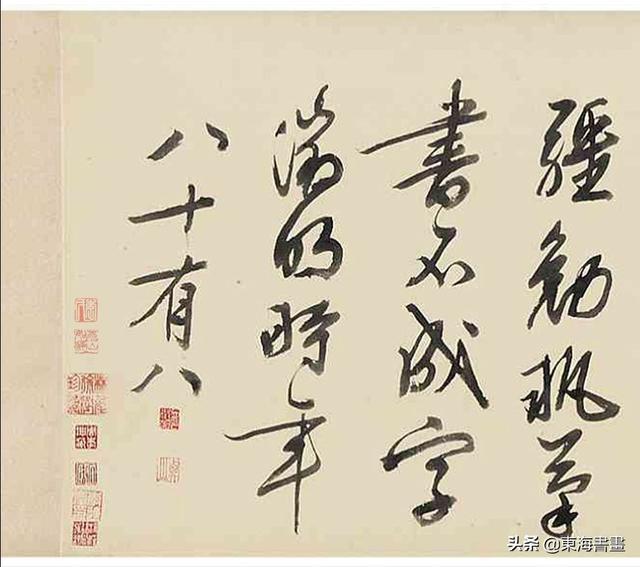 彊勉執筆
書不成字
徵明時年
八十有八
头条 @東海書畫